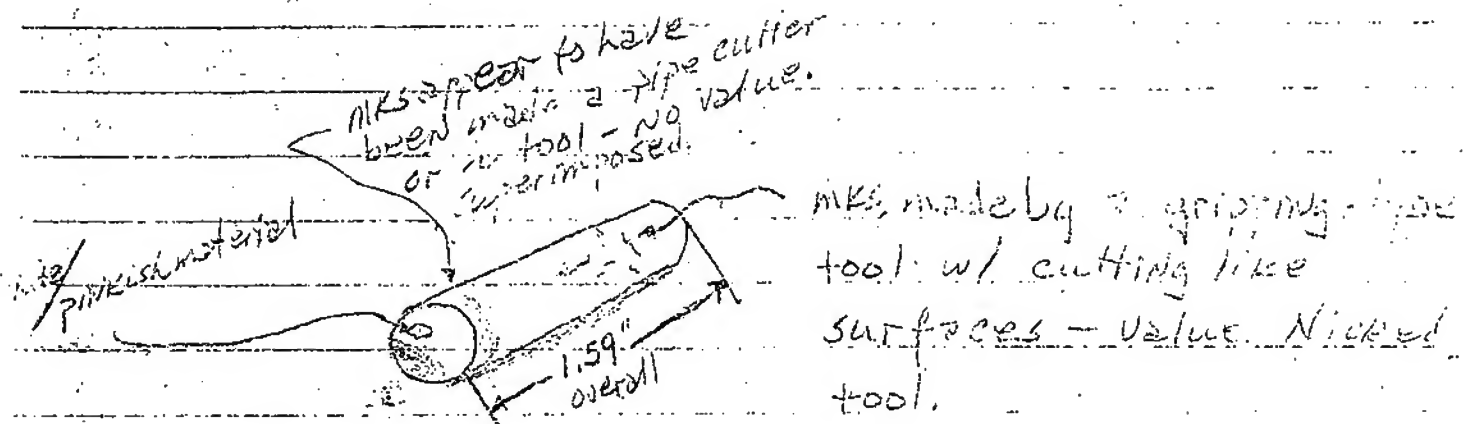 MKS appear to have
been made a pipe cutter
or tool - NO value.
superimposed.
pinkish material
1.59"
overall
MKS, made by a gripping type
tool w/ cutting like
surfaces - value Nicked
tool.